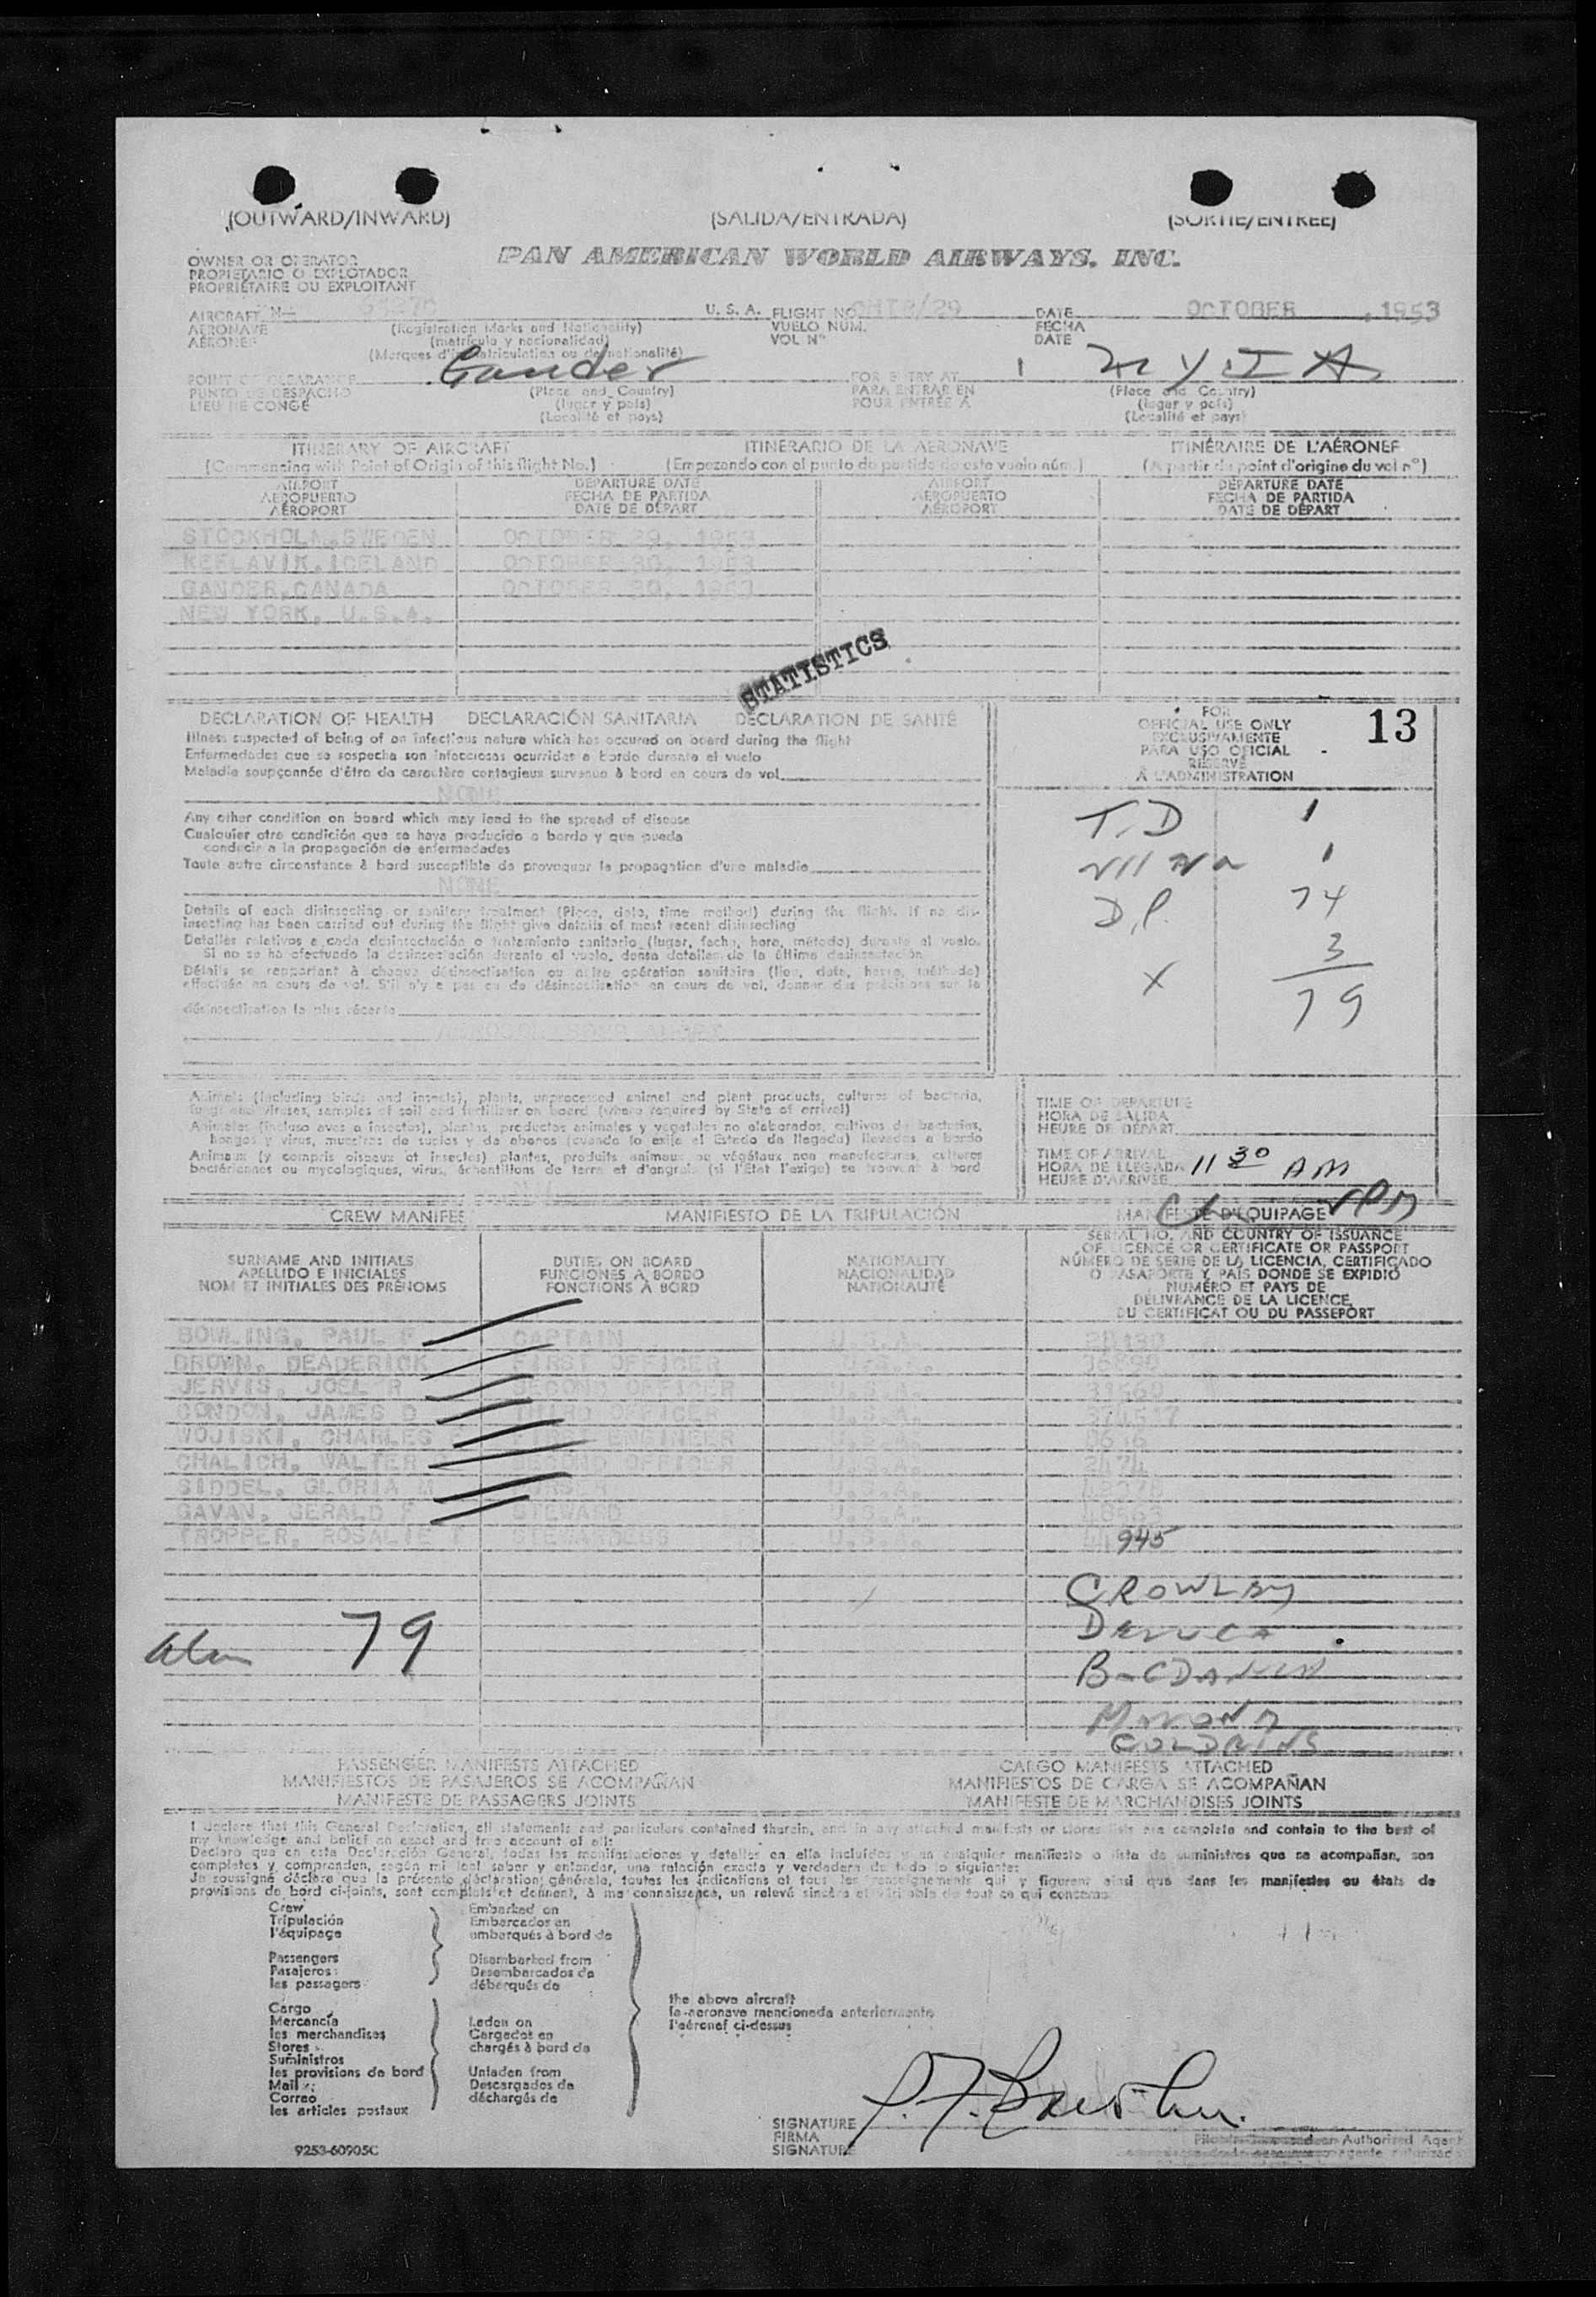 (OUTWARD/INWARD) (SALIDA/ENTRADA) (SORTIE/ENTREE)
PAN AMERICAN WORLD AIRWAYS, INC.
OWNER OR OPERATOR
PROPIETARIO O EXPLOTADOR
PROPRIÉTAIRE OU EXPLOITANT
AIRCRAFT N— U. S. A. FLIGHT NO. CHTR/29 DATE OCTOBER , 1953
AERONAVE (Registration Marks and Nationality) VUELO NUM. FECHA
AÉRONEF (matrícula y nacionalidad) VOL Nº DATE
(Marques d'immatriculation ou de nationalité)
POINT OF CLEARANCE Gander FOR ENTRY AT NYIA
PUNTO DE DESPACHO (Place and Country) PARA ENTRAR EN (Place and Country)
LIEU DE CONGÉ (lugar y país) POUR ENTRÉE À (lugar y país)
(Localité et pays) (Localité et pays)
ITINERARY OF AIRCRAFT ITINERARIO DE LA AERONAVE ITINÉRAIRE DE L'AÉRONEF
(Commencing with Point of Origin of this flight No.) (Empezando con el punto de partida de este vuelo núm.) (A partir du point d'origine du vol nº)
AIRPORT DEPARTURE DATE AIRPORT DEPARTURE DATE
AEROPUERTO FECHA DE PARTIDA AEROPUERTO FECHA DE PARTIDA
AÉROPORT DATE DE DÉPART AÉROPORT DATE DE DÉPART
STOCKHOLM,SWEDEN OCTOBER 29, 1953
KEFLAVIK,ICELAND OCTOBER 30, 1953
GANDER,CANADA OCTOBER 30, 1953
NEW YORK, U.S.A.
STATISTICS
DECLARATION OF HEALTH DECLARACIÓN SANITARIA DÉCLARATION DE SANTÉ
Illness suspected of being of an infectious nature which has occured on board during the flight
Enfermedades que se sospecha son infecciosas ocurridas a bordo durante el vuelo
Maladie soupçonnée d'être de caractère contagieux survenue à bord en cours de vol
NONE
Any other condition on board which may lead to the spread of disease
Cualquier otra condición que se haya producido a bordo y que pueda
conducir a la propagación de enfermedades
Toute autre circonstance à bord susceptible de provoquer la propagation d'une maladie
NONE
Details of each disinsecting or sanitary treatment (Place, date, time method) during the flight. If no dis-
insecting has been carried out during the flight give details of most recent disinsecting
Detalles relativos a cada desinsectación o tratamiento sanitario (lugar, fecha, hora, método) durante el vuelo.
Si no se ha efectuado la desinsectación durante el vuelo, dense detalles de la última desinsectación
Détails se rapportant à chaque désinsectisation ou autre opération sanitaire (lieu, date, heure, méthode)
effectuée en cours de vol. S'il n'y a pas eu de désinsectisation en cours de vol, donner des précisions sur la
désinsectisation la plus récente
FOR
OFFICIAL USE ONLY 13
EXCLUSIVAMENTE
PARA USO OFICIAL
RESERVÉ
À L'ADMINISTRATION
T.D 1
1
D.P. 74
X 3
79
Animals (including birds and insects), plants, unprocessed animal and plant products, cultures of bacteria,
fungi and viruses, samples of soil and fertilizer on board (where required by State of arrival)
Animales (incluso aves e insectos), plantas, productos animales y vegetales no elaborados, cultivos de bacterias,
hongos y virus, muestras de suelos y de abonos (cuando lo exija el Estado de llegada) llevados a bordo
Animaux (y compris oiseaux et insectes) plantes, produits animaux ou végétaux non manufacturés, cultures
bactériennes ou mycologiques, virus, échantillons de terre et d'engrais (si l'État l'exige) se trouvant à bord
TIME OF DEPARTURE
HORA DE SALIDA
HEURE DE DÉPART
TIME OF ARRIVAL
HORA DE LLEGADA 11 30 AM
HEURE D'ARRIVÉE
CREW MANIFES MANIFIESTO DE LA TRIPULACIÓN MANIFESTE D'EQUIPAGE
SURNAME AND INITIALS DUTIES ON BOARD NATIONALITY SERIAL NO. AND COUNTRY OF ISSUANCE
APELLIDO E INICIALES FUNCIONES A BORDO NACIONALIDAD OF LICENCE OR CERTIFICATE OR PASSPORT
NOM ET INITIALES DES PRÉNOMS FONCTIONS À BORD NATIONALITÉ NÚMERO DE SERIE DE LA LICENCIA, CERTIFICADO
O PASAPORTE Y PAÍS DONDE SE EXPIDIÓ
NUMÉRO ET PAYS DE
DÉLIVRANCE DE LA LICENCE,
DU CERTIFICAT OU DU PASSEPORT
BOWLING, PAUL F CAPTAIN U.S.A.
BROWN, DEADERICK FIRST OFFICER U.S.A.
JERVIS, JOEL R SECOND OFFICER U.S.A.
CONDON, JAMES D THIRD OFFICER U.S.A.
WOJISKI, CHARLES FIRST ENGINEER U.S.A.
CHALICH, WALTER SECOND OFFICER U.S.A. 2474
SIDDEL, GLORIA M PURSER U.S.A.
GAVAN, GERALD F STEWARD U.S.A.
TROPPER, ROSALIE STEWARDESS U.S.A. 945
CROWLEY
DELUCA
79
GOLDBERG
PASSENGER MANIFESTS ATTACHED CARGO MANIFESTS ATTACHED
MANIFIESTOS DE PASAJEROS SE ACOMPAÑAN MANIFIESTOS DE CARGA SE ACOMPAÑAN
MANIFESTE DE PASSAGERS JOINTS MANIFESTE DE MARCHANDISES JOINTS
I declare that this General Declaration, all statements and particulars contained therein, and in any attached manifests or stores lists are complete and contain to the best of
my knowledge and belief an exact and true account of all:
Declaro que en esta Declaración General, todas las manifestaciones y detalles en ella incluídos y en cualquier manifiesto o lista de suministros que se acompañan, son
completos y comprenden, según mi leal saber y entender, una relación exacta y verdadera de todo lo siguiente:
Je soussigné déclare que la présente déclaration générale, toutes les indications et tous les renseignements qui y figurent ainsi que dans les manifestes ou états de
provisions de bord ci-joints, sont complets et donnent, à ma connaissance, un relevé sincère et véritable de tout ce qui concerne
Crew Embarked on
Tripulación Embarcados en
l'équipage embarqués à bord de
Passengers Disembarked from
Pasajeros Desembarcados de
les passagers débarqués de
Cargo the above aircraft
Mercancía Laden on la aeronave mencionada anteriormente
les merchandises Cargados en l'aéronef ci-dessus
Stores chargés à bord de
Suministros
les provisions de bord Unladen from
Mail Descargados de
Correo déchargés de
les articles postaux
SIGNATURE
FIRMA
SIGNATURE
Authorized Agent
9253-60905C